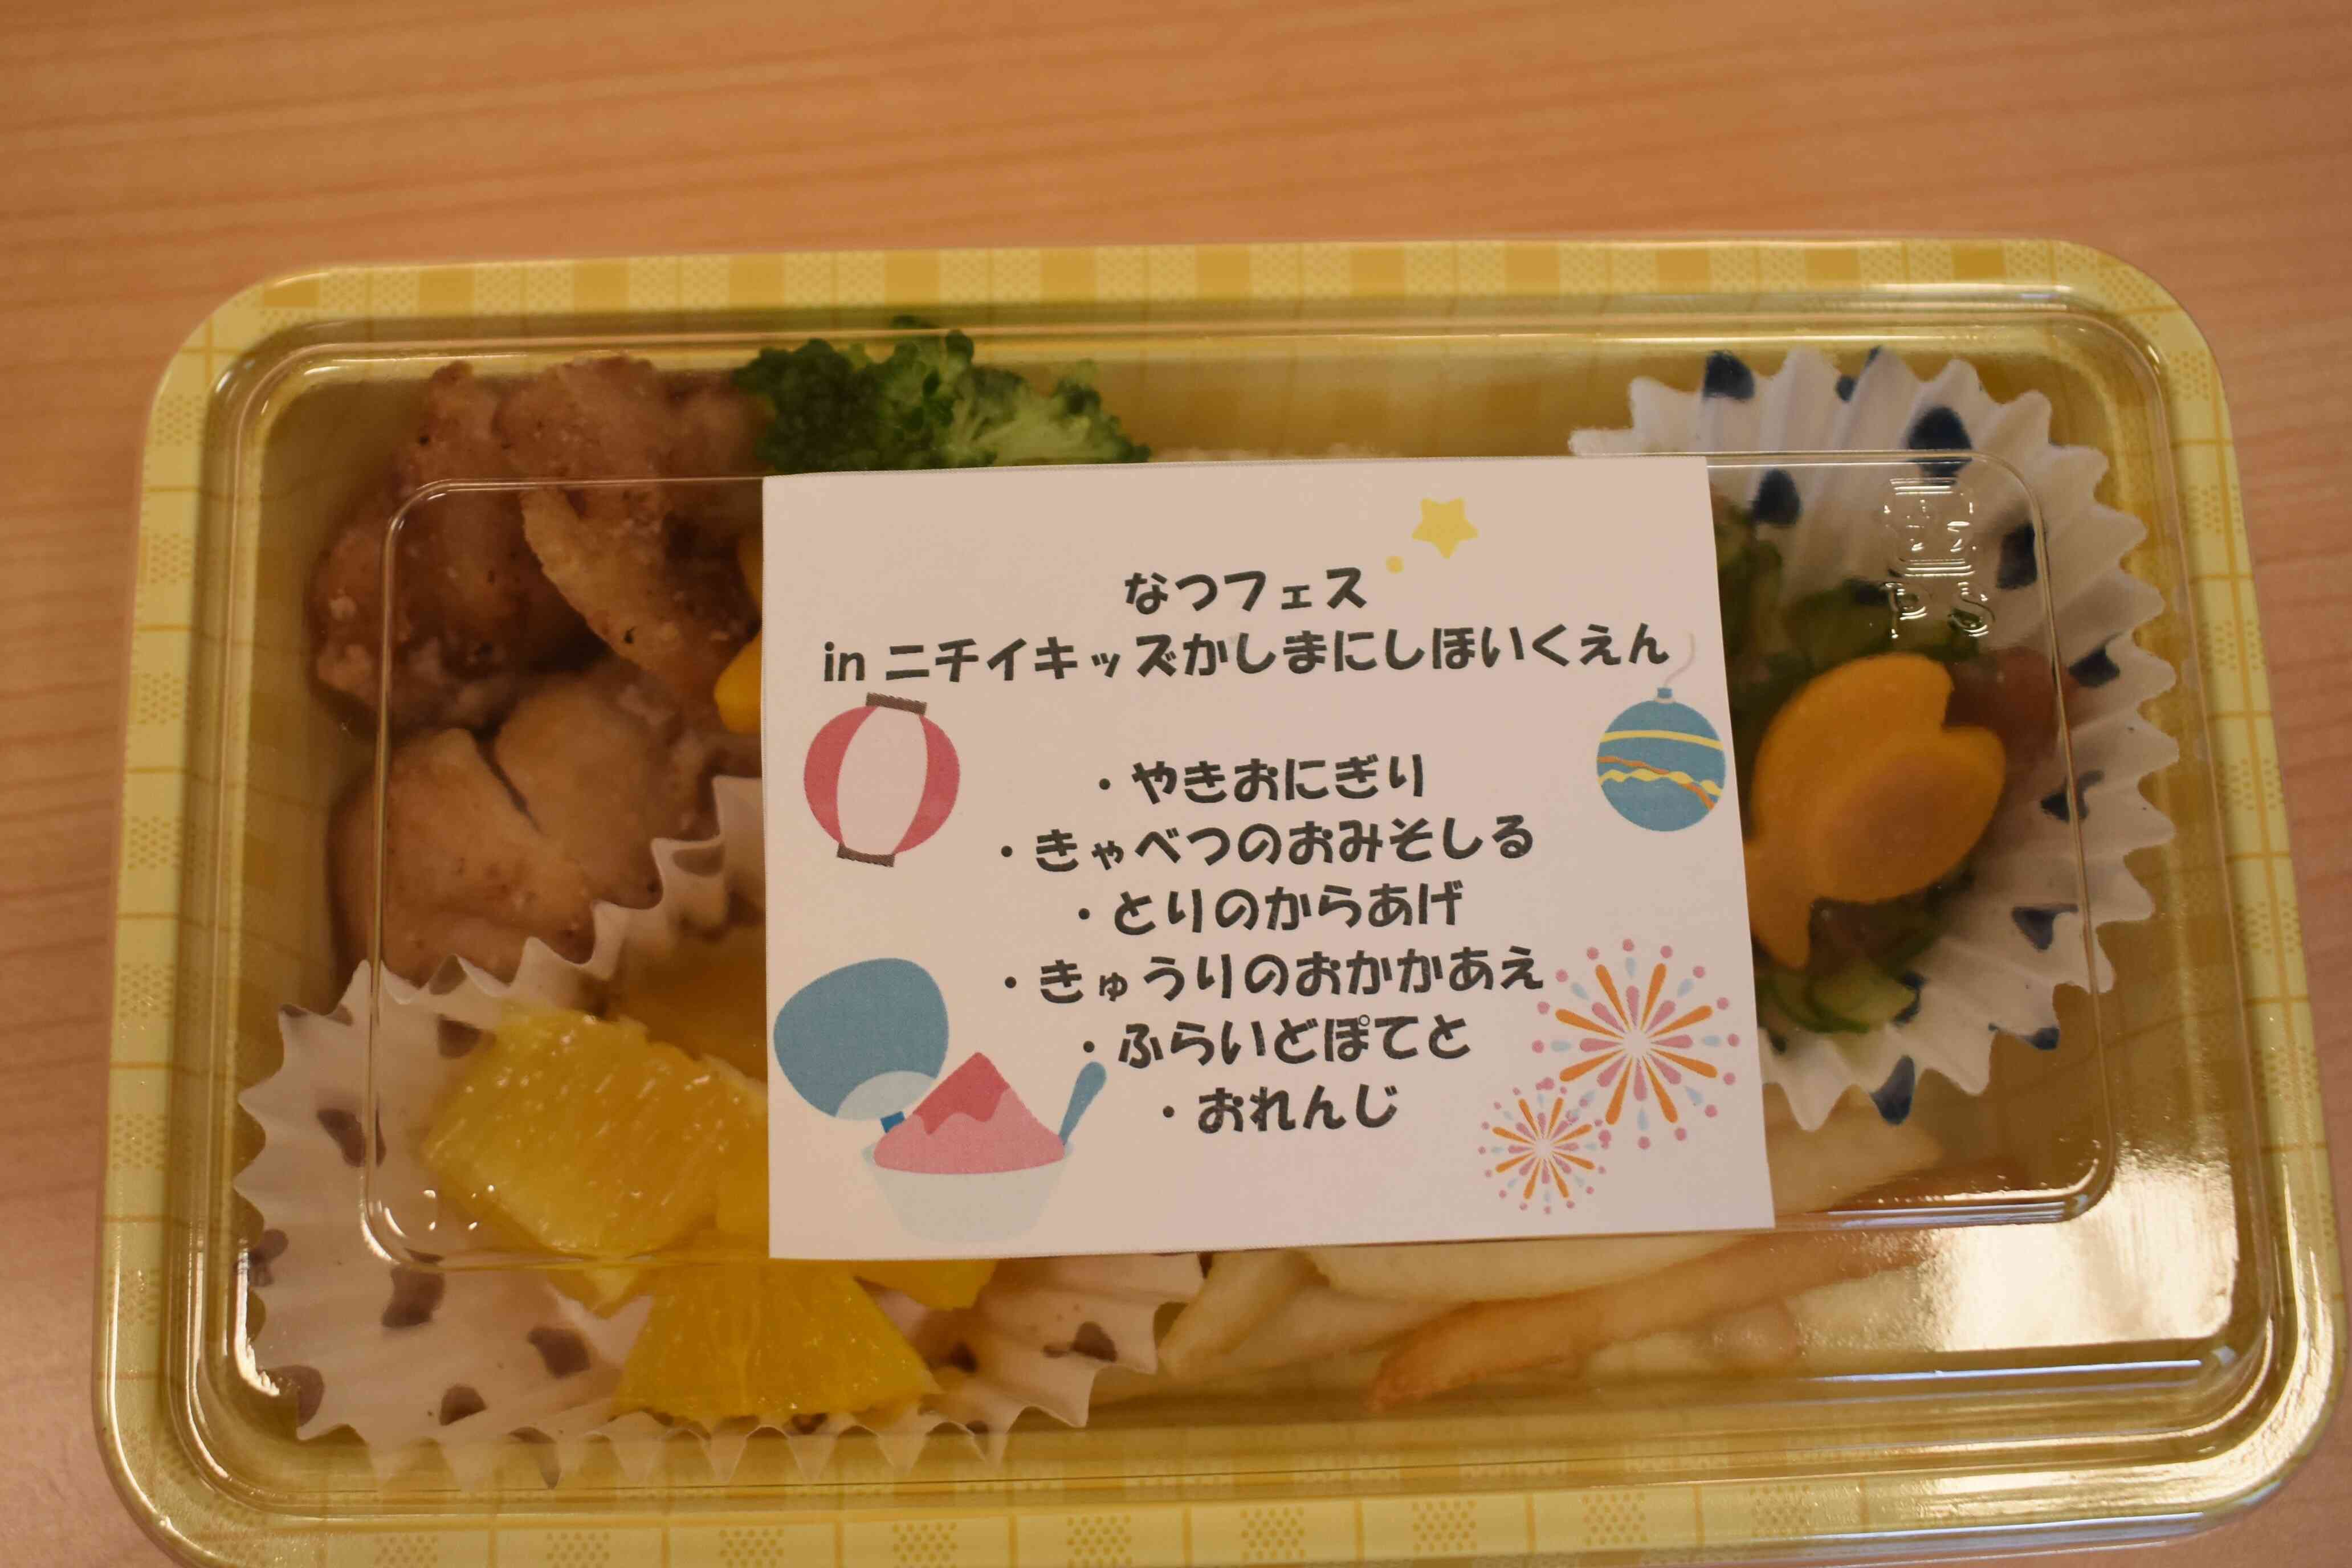 なつフェス
in ニチイキッズかしまにしほいくえん
・やきおにぎり
・きゃべつのおみそしる
・とりのからあげ
・きゅうりのおかかあえ
・ふらいどぽてと
・おれんじ
PS